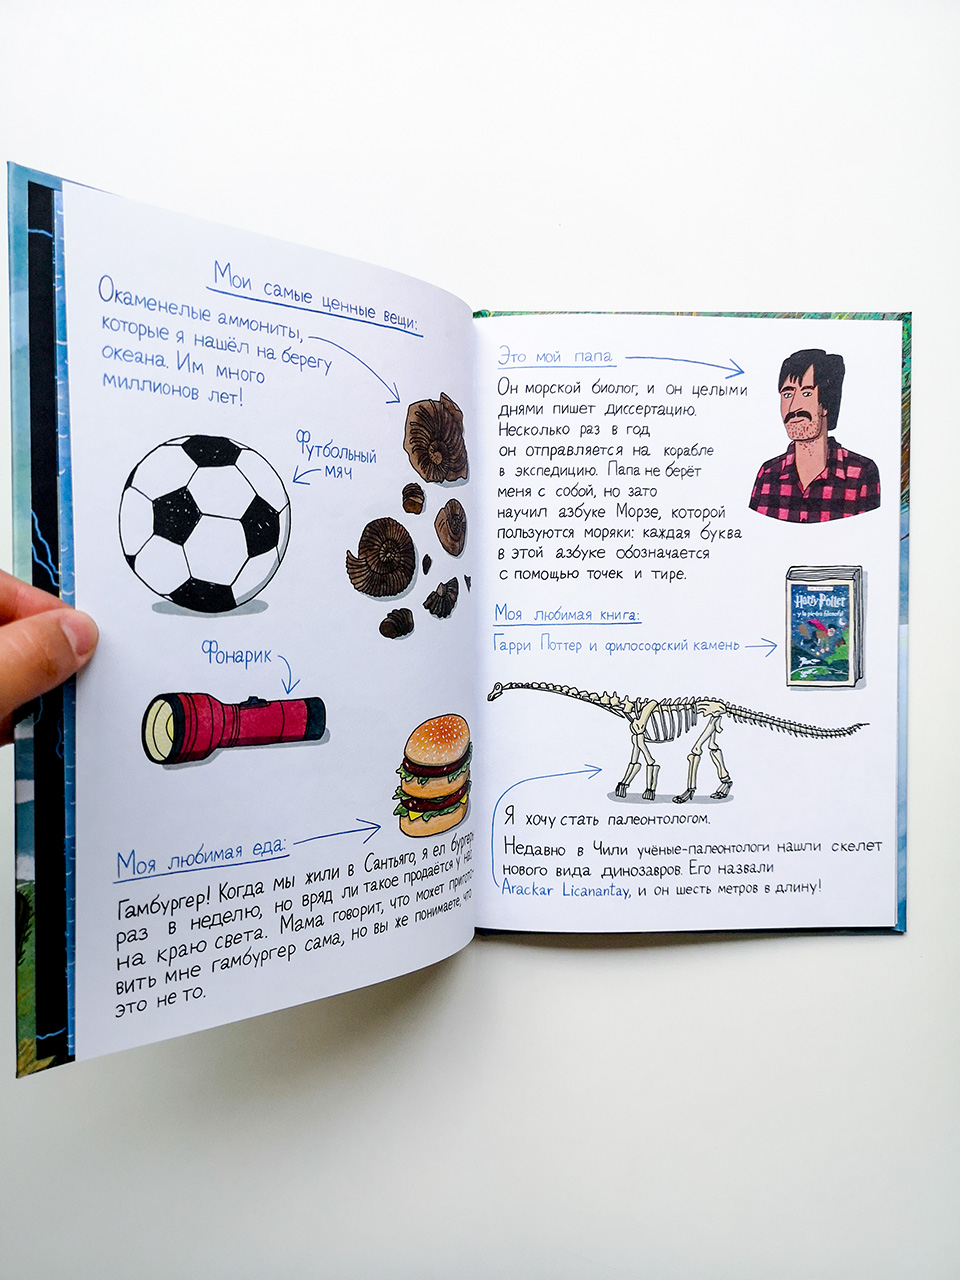 Мои самые ценные вещи:
Окаменелые аммониты,
которые я нашёл на берегу
океана. Им много
миллионов лет!
Футбольный
мяч
Фонарик
Моя любимая еда:
Гамбургер! Когда мы жили в Сантьяго, я ел бургеры
раз в неделю, но вряд ли такое продаётся у нас
на краю света. Мама говорит, что может пригото-
вить мне гамбургер сама, но вы же понимаете, что
это не то.
Это мой папа
Он морской биолог, и он целыми
днями пишет диссертацию.
Несколько раз в год
он отправляется на корабле
в экспедицию. Папа не берёт
меня с собой, но зато
научил азбуке Морзе, которой
пользуются моряки: каждая буква
в этой азбуке обозначается
с помощью точек и тире.
Моя любимая книга:
Гарри Поттер и философский камень
Harry Potter
y la piedra filosofal
Я хочу стать палеонтологом.
Недавно в Чили учёные-палеонтологи нашли скелет
нового вида динозавров. Его назвали
Arackar Licanantay, и он шесть метров в длину!